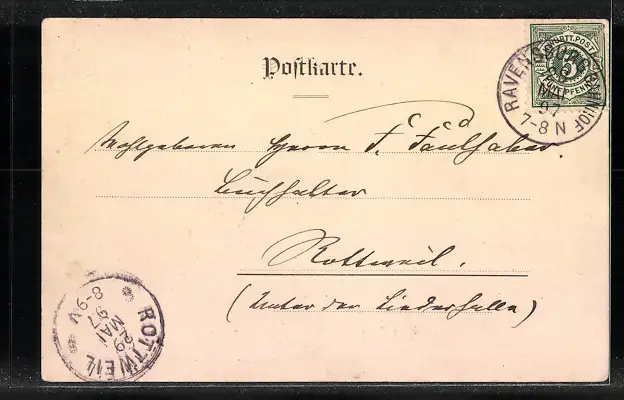 Postkarte.
K. WÜRTT. POST
5
FÜNF PFENNIG
RAVENSBURG BAHNHOF
MAI
97
7-8 N
Wohlgeboren Herrn F. Faulhaber.
Buchhalter
Rottweil.
(Unter der Liederhalle)
ROTTWEIL
29
MAI
97
8-9 V